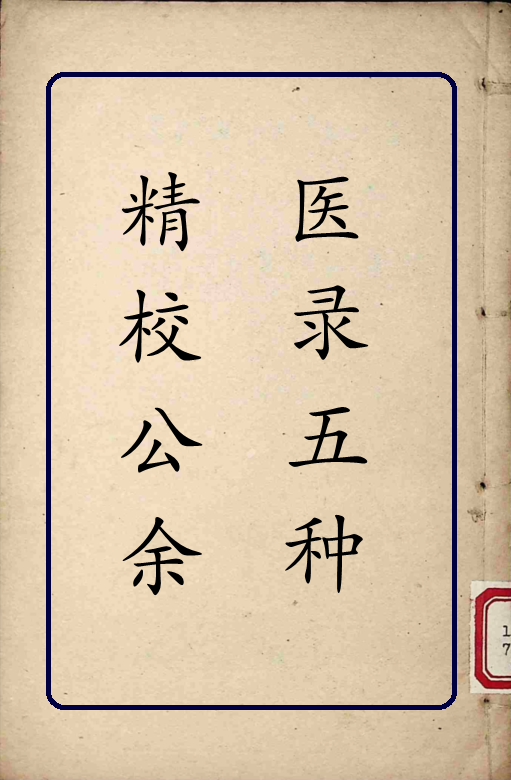 精校公余
医录五种
1
7